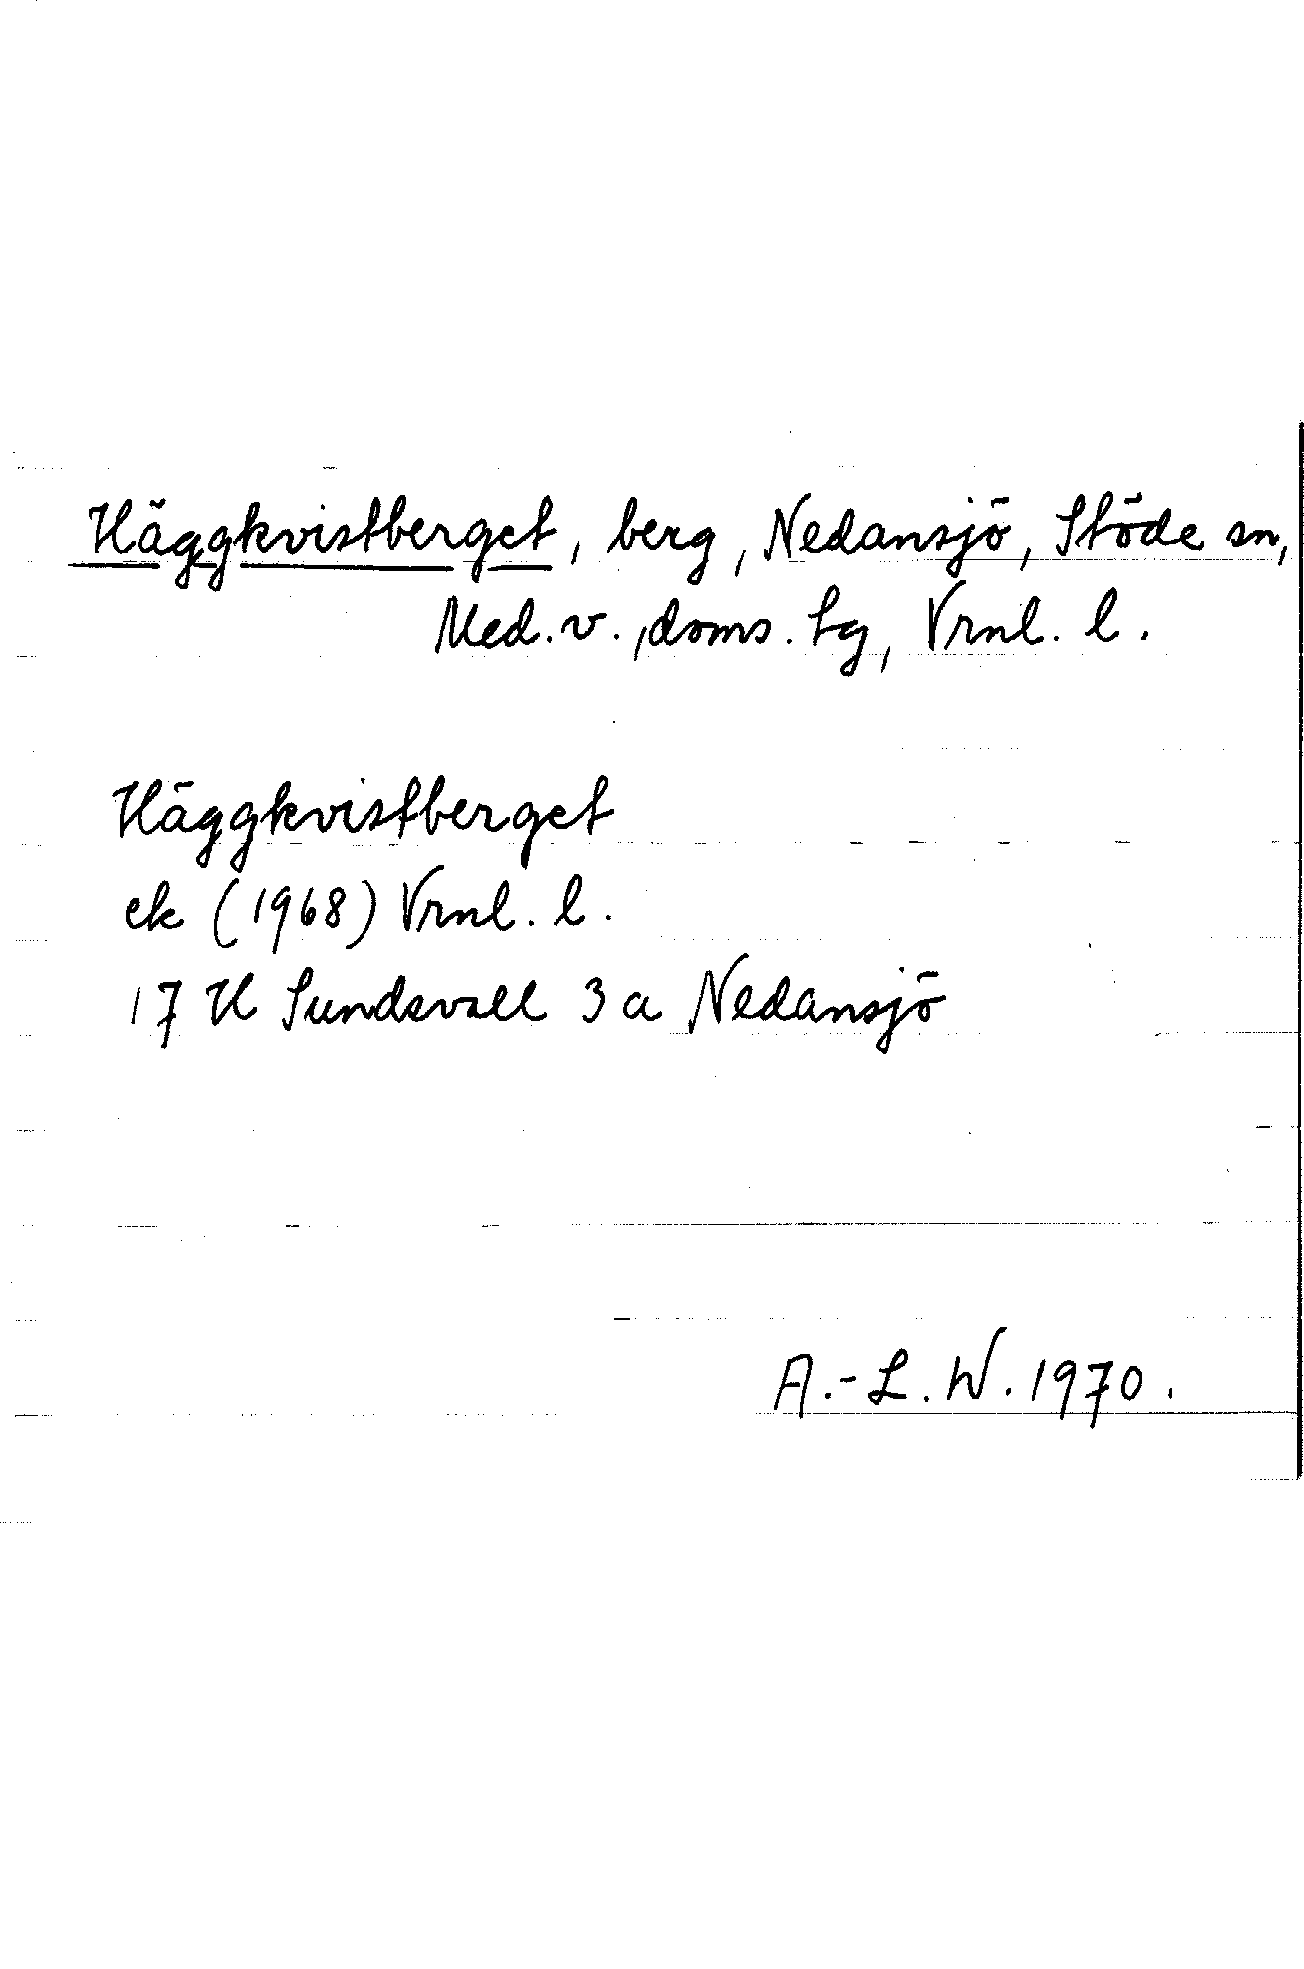 Häggkvistberget, berg, Nedansjö, Stöde sn,
Med. v., doms. tg, Vrnl. l.
Häggkvistberget
ek (1968) Vrnl. l.
17 H Sundsvall 3 a Nedansjö
A.-L. W. 1970.